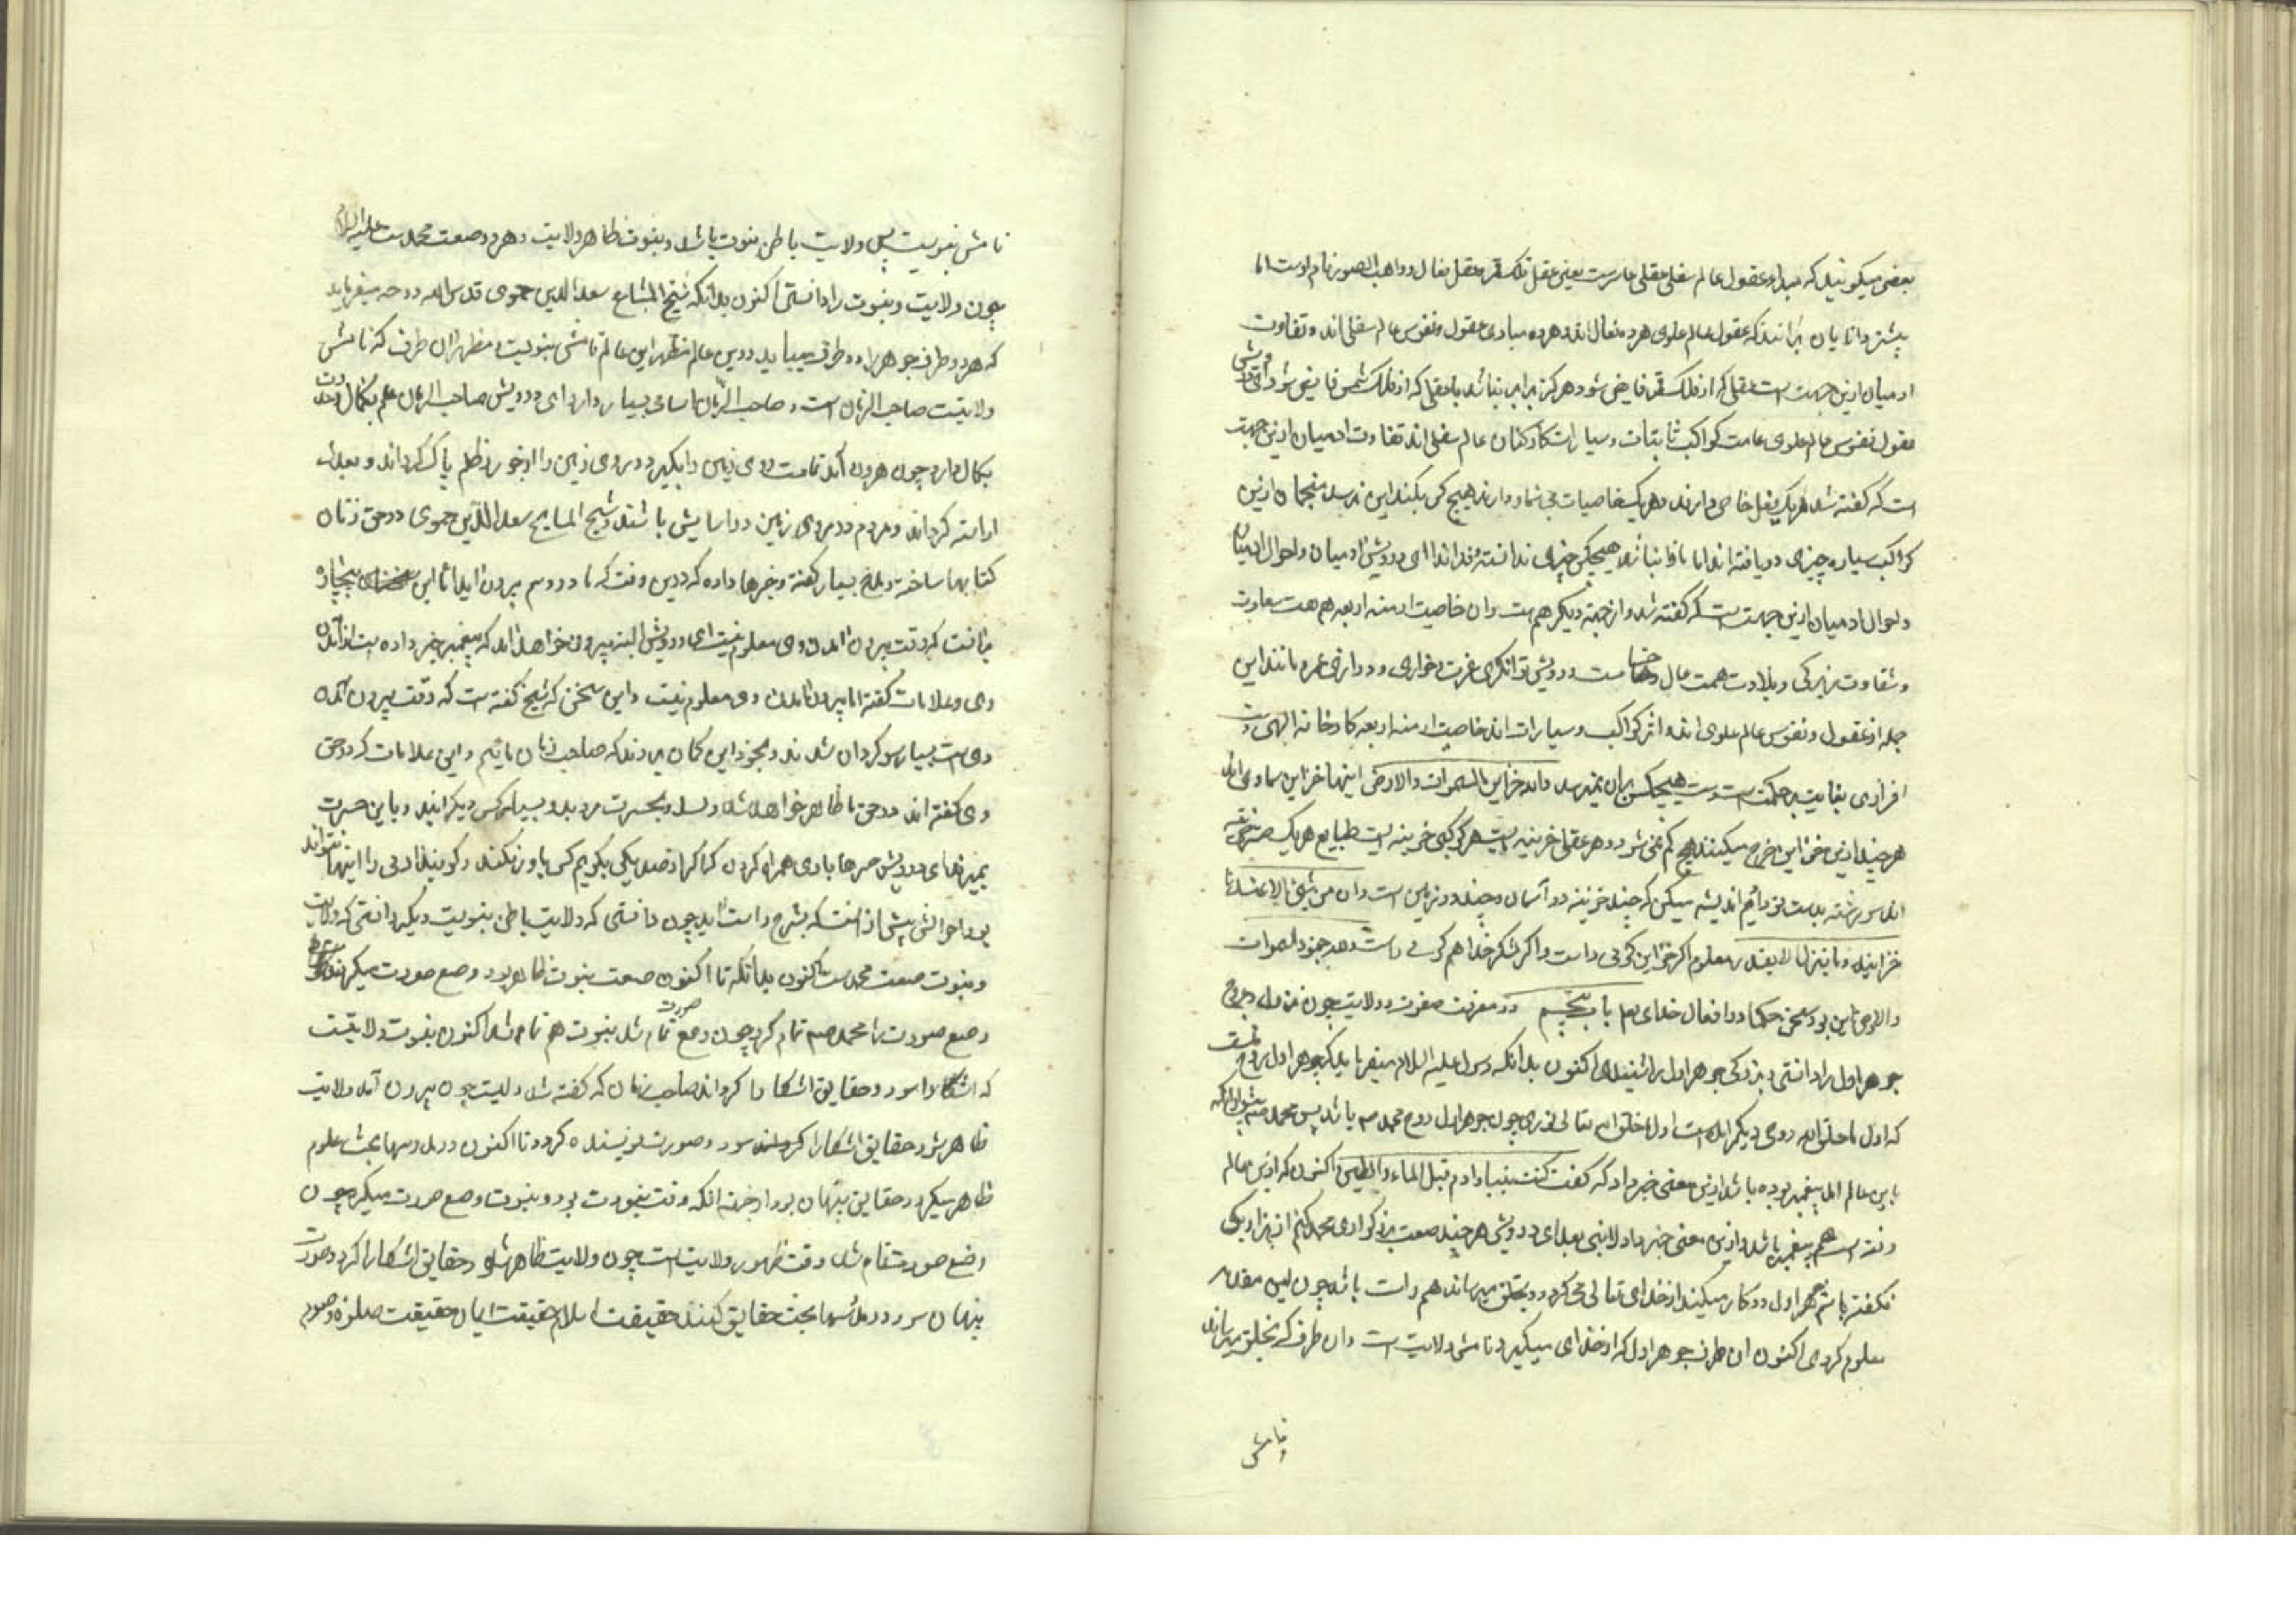 بعضی میکویند که مبداء عقول عالم سفلی عقل عاشرست یعنی عقل فلک قمر و عقل فعال و واهب الصور نام اوست اما
بیشتر دانایان برانند که عقول عالم علوی هر ده فعال اند و هر ده مبادی عقول و نفوس عالم سفلی اند و تفاوت
ادمیان ازین جهت است عقلی که از فلک قمر فایض شود هرکز برابر نباشد با عقلی که از فلک شمس فایض شود ای درویش
عقول نفوس عالم علوی کواکب ثابتات و سیارات کارکنان عالم سفلی اند تفاوت ادمیان ازین جهت
است که کفته شد هر یک فعل خاص دارند و هر یک خاصیات بی شمار دارند هیچ کس بکنه این نرسد منجمان ازین
کواکب سیاره چیزی دریافته اند اما از ثابتات هیچکس چیزی ندانسته اند ای درویش ادمیان و احوال ادمیان
و احوال ادمیان ازین جهت است که کفته شد و از جهت دیکر هم هست و ان خاصیت ازمنه اربعه هم هست سعادت
و شقاوت زیرکی و بلادت همت عال و خساست درویشی توانکری عزت و خواری و درازی عمر و مانند این
جمله از عقول و نفوس عالم علوی اند و اثر کواکب و سیارات اند خاصیت ازمنه اربعه کارخانه الهی است
افرازی بغایت پر حکمت است هیچکس بران نمیرسد ولله خزاین السموات والارض اینها خزاین سماوی اند
هر چند ازین خزاین خرج میکنند هیچ کم نمی شود و هر عقلی خزینه ایست هر کوکبی خزینه ایست طبایع هر یک خزینه
اند سررشته بدست تو دادیم اندیشه میکن که چند خزینه در آسمان و چند در زمین است وان من شیئ الا عندنا
خزاینه وما ینزله الا بقدر معلوم اکر خزاین کوئی راست و اکر لشکر خدا هم کوئی راست ولله جنود السموات
والارض این بود سخن حکما در افعال خدای تعالی باب پنجم در معرفت صفوت و ولایت چون
جوهر اول را دانستی و بزرکی جوهر اول را شنیدی اکنون بدانکه رسول علیه السلام میفرماید که جوهر اول روح منست
که اول ما خلق الله روحی و دیکر امده است اول ما خلق الله تعالی نوری چون جوهر اول روح محمد صم باشد پس محمد صم پیش ازانکه
باین عالم اید پیغمبر بوده باشد ازین معنی خبر داد که کفت کنت نبیا و ادم بین الماء والطین و اکنون که ازین عالم
رفته است هم پیغمبر باشد و ازین معنی خبر داد لا نبی بعدی ای درویش هر چند صفت بزرکواری محمد کنم از هزار یکی
نکفته باشم جوهر اول دو کار میکند از خدای تعالی میکیرد و بخلق میرساند هم راست باشد چون این مقدمه
معلوم کردی اکنون ان طرف جوهر اول که از خدای میکیرد نامش ولایت است و ان طرف که بخلق میرساند
نامش
نامش نبویت پس ولایت باطن نبوت باشد و نبوت ظاهر ولایت و هر دو صفت محمدست علیه السلام
چون ولایت و نبوت را دانستی اکنون بدانکه شیخ المشایخ سعد الدین حموی قدس الله روحه میفرماید
که هر دو طرف جوهر را دو طرف میباید درین عالم مظهر این عالم نامش نبویت و مظهر ان طرف که نامش
ولایتیت صاحب الزمان است و صاحب الزمان اسامی بسیار دارد ای درویش صاحب الزمان علم بکمال و قدرت
بکمال دارد چون بیرون آید تمامت روی زمین را بکیرد و روی زمین را از جور و ظلم پاک کرداند و بعدل
اراسته کرداند و مردم در روی زمین در اسایش باشند و شیخ المشایخ سعد الدین حموی در حق زنان
کتابها ساخته و مدح بسیار کفته و خبرها داده که درین وقت که ما دروییم بیرون اید اما این بیچاره
بدانست که وقت بیرون امدن وی معلوم نیست ای درویش البته بیرون خواهد امد که پیغمبر خبر داده است از آمدن
وی و علامات کفته اما بیرون آمدن وی معلوم نیست و این سخن که شیخ کفته است که وقت بیرون آمدن
وی است بسیار سرکردان شدند و بخود این کمان بردند که صاحب زمان مائیم و این علامات که در حق
وی کفته اند در حق ما ظاهر خواهد شد و نشد و بحسرت مردند و بسیار کس دیکر ایند و باین حسرت
بمیرند ای درویش
بود احوالش پیش ازانست که بشرح راست اید چون دانستی که ولایت باطن نبویت و دیکر دانستی که ولایت
و نبوت صفت محمدست اکنون بدانکه تا اکنون صفت نبوت ظاهر بود وضع صورت میکردند
وضع صورت را محمد صم تمام کرد چون وضع صورت تمام شد نبوت هم تمام شد اکنون نوبت ولایتست
که اشکارا شود و حقایق اشکارا کرداند صاحب زمان که کفته شد ولیست چون بیرون آمد ولایت
ظاهر شود حقایق اشکارا کردد و صورت پوشیده کردد تا اکنون در مدرسها بحث علوم
ظاهر میکردند و حقایق پنهان بود از جهت انکه وقت نبوت بود و نبوت وضع صورت میکرد چون
وضع صورت تمام شد وقت ظهور ولایت است چون ولایت ظاهر شد و حقایق اشکارا کردد و صورت
پنهان شود در مدرسها بحث حقایق کنند حقیقت اسلام حقیقت ایمان حقیقت صلوة و صوم